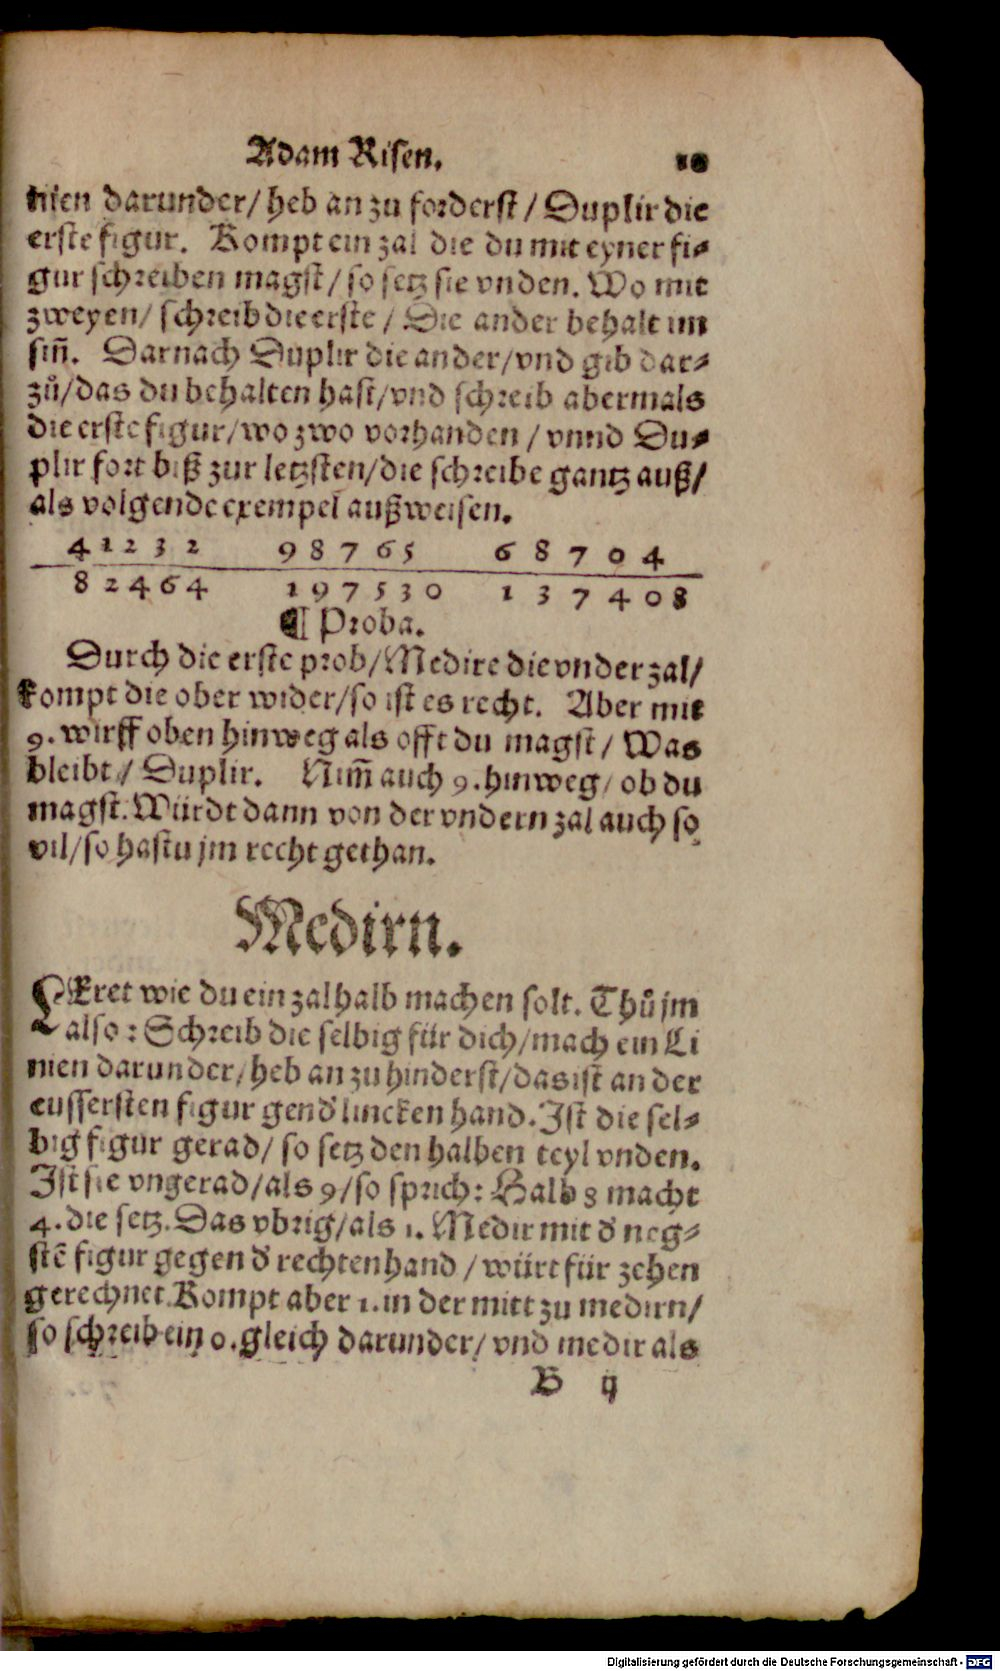 Adam Risen. 10
nien darunder/ heb an zu forderst/ Duplir die
erste figur. Kompt ein zal die du mit eyner fi⸗
gur schreiben magst/ so setz sie vnden. Wo mit
zweyen/ schreib die erste/ Die ander behalt im
sin̄. Darnach Duplir die ander/ vnd gib dar⸗
zuͦ/ das du behalten hast/ vnd schreib abermals
die erste figur/ wo zwo vorhanden/ vnnd Du⸗
plir fort biß zur letzsten/ die schreibe gantz auß/
als volgende exempel außweisen.
41232 98765 68704
82464 197530 137408
¶ Proba.
Durch die erste prob/ Medire die vnder zal/
kompt die ober wider/ so ist es recht. Aber mit
9. wirff oben hinweg als offt du magst/ Was
bleibt/ Duplir. Nim̄ auch 9. hinweg/ ob du
magst. Würdt dann von der vndern zal auch so
vil/ so hastu jm recht gethan.
Medirn.
LEret wie du ein zal halb machen solt. Thuͦ jm
also: Schreib die selbig für dich/ mach ein Li
nien darunder/ heb an zu hinderst/ das ist an der
eussersten figur gen d' lincken hand. Ist die sel⸗
big figur gerad/ so setz den halben teyl vnden.
Ist sie vngerad/ als 9/ so sprich: Halb 8 macht
4. die setz. Das vbrig/ als 1. Medir mit d' neg⸗
stē figur gegen d' rechten hand/ würt für zehen
gerechnet. Kompt aber 1. in der mitt zu medirn/
so schreib ein 0. gleich darunder/ vnd medir als
B ij
Digitalisierung gefördert durch die Deutsche Forschungsgemeinschaft - DFG